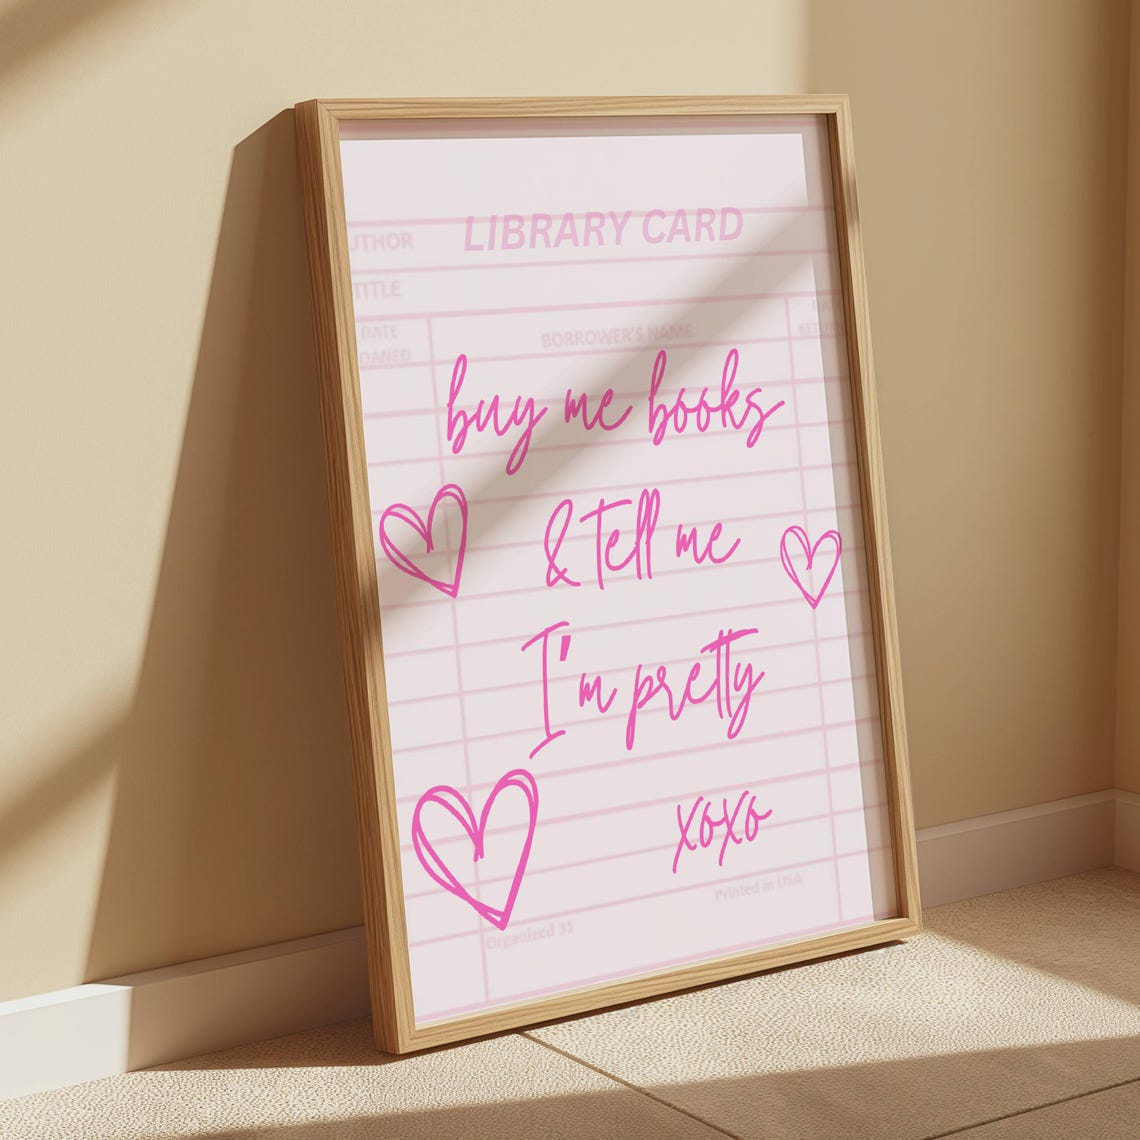 LIBRARY CARD
UTHOR
TITLE
DATE
OANED
BORROWER'S NAME
buy me books
& tell me
I'm pretty
xoxo
Printed in USA
Organized 31